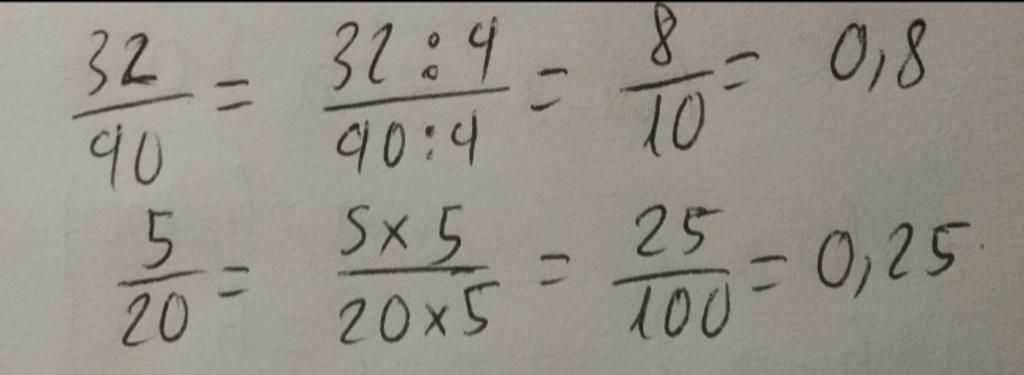 32/40 = 32:4/40:4 = 8/10 = 0,8
5/20 = 5×5/20×5 = 25/100 = 0,25